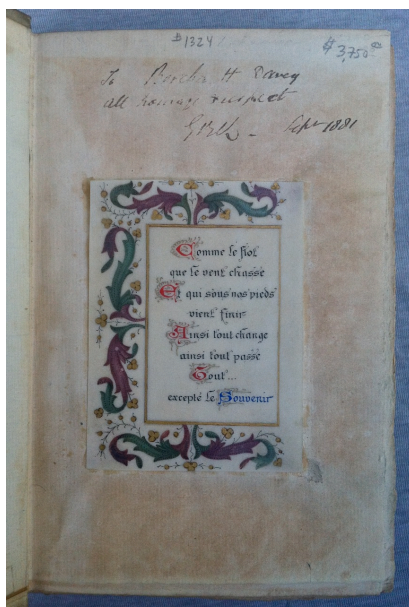 B1324
$3,750
To Bertha H Davey
all homage & respect
Sept 1881
Comme le flot
que le vent chasse
Et qui sous nos pieds
vient finir
Ainsi tout change
ainsi tout passe
Tout...
excepté le Souvenir